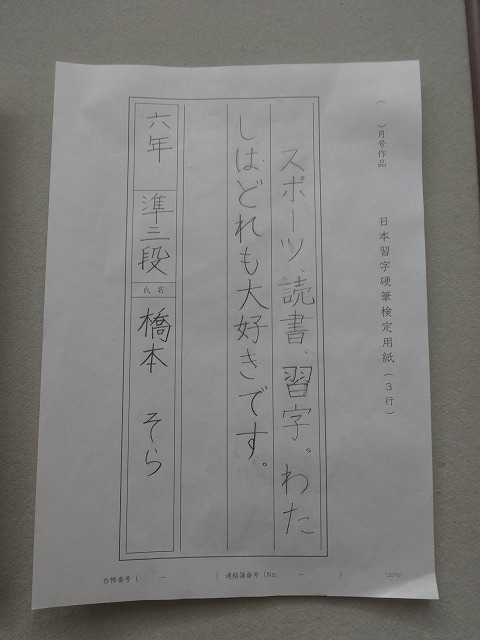 （　　）月号作品
日本習字硬筆検定用紙（３行）
スポーツ、読書、習字。わた
しはどれも大好きです。
六年　準三段　氏名　橋本　そら
台帳番号（　　－　　）連絡簿番号（No.　　－　　）